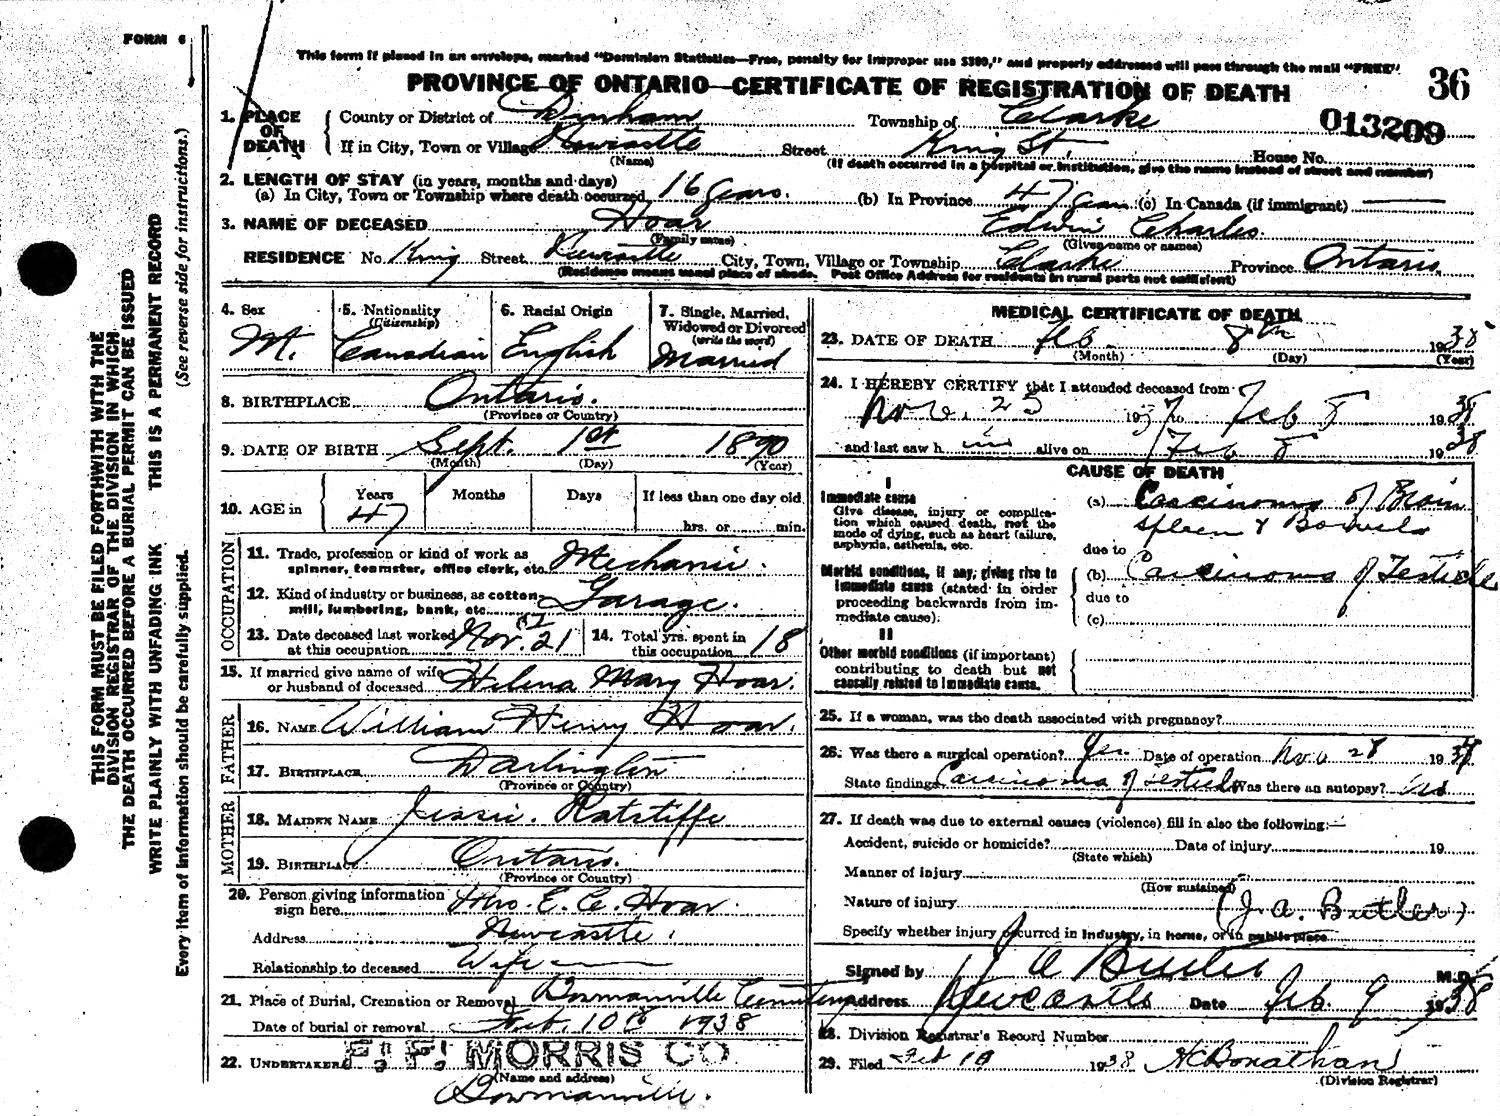 FORM 6
This form if placed in an envelope, marked "Dominion Statistics—Free, penalty for improper use $300," and properly addressed will pass through the mail "FREE"
PROVINCE OF ONTARIO—CERTIFICATE OF REGISTRATION OF DEATH
36
013209
1. PLACE OF DEATH { County or District of Durham Township of Clarke
If in City, Town or Village Newcastle Street King St. House No.
(Name) (If death occurred in a hospital or institution, give the name instead of street and number)
2. LENGTH OF STAY (in years, months and days)
(a) In City, Town or Township where death occurred 16 years. (b) In Province 47 years (c) In Canada (if immigrant) —
3. NAME OF DECEASED Hoar Edwin Charles.
(Family name) (Given name or names)
RESIDENCE No. King Street Newcastle City, Town, Village or Township Clarke Province Ontario.
(Residence means usual place of abode. Post Office Address for residents in rural parts not sufficient)
4. Sex M.
5. Nationality (Citizenship) Canadian
6. Racial Origin English
7. Single, Married, Widowed or Divorced (write the word) Married
8. BIRTHPLACE Ontario.
(Province or Country)
9. DATE OF BIRTH Sept. 1st 1890
(Month) (Day) (Year)
10. AGE in { Years 47 Months Days If less than one day old
hrs. or min.
OCCUPATION
11. Trade, profession or kind of work as spinner, teamster, office clerk, etc. Mechanic.
12. Kind of industry or business, as cotton-mill, lumbering, bank, etc. Garage.
13. Date deceased last worked at this occupation Nov. 21 37
14. Total yrs. spent in this occupation 18
15. If married give name of wife or husband of deceased Helena Mary Hoar.
FATHER
16. NAME William Henry Hoar.
17. BIRTHPLACE Darlington
(Province or Country)
MOTHER
18. MAIDEN NAME Jessie. Ratcliffe
19. BIRTHPLACE Ontario.
(Province or Country)
20. Person giving information sign here Mrs. E. C. Hoar.
Address Newcastle.
Relationship to deceased Wife
21. Place of Burial, Cremation or Removal Bowmanville Cemetery
Date of burial or removal Feb. 10th 1938
22. UNDERTAKER F. F. MORRIS CO
(Name and address)
Bowmanville.
MEDICAL CERTIFICATE OF DEATH
23. DATE OF DEATH Feb. 8th 1938
(Month) (Day) (Year)
24. I HEREBY CERTIFY that I attended deceased from
Nov. 25 1937 to Feb 8 1938
and last saw him alive on Feb 8 1938
CAUSE OF DEATH
I
Immediate cause
Give disease, injury or complication which caused death, not the mode of dying, such as heart failure, asphyxia, asthenia, etc.
(a) Carcinoma of Brain
Spleen & Bowels
due to
Morbid conditions, if any, giving rise to immediate cause (stated in order proceeding backwards from immediate cause).
(b) Carcinoma of Testicle
due to
(c)
II
Other morbid conditions (if important) contributing to death but not causally related to immediate cause.
25. If a woman, was the death associated with pregnancy?
26. Was there a surgical operation? Yes. Date of operation Nov 28 1937
State findings Carcinoma of testicle Was there an autopsy? no
27. If death was due to external causes (violence) fill in also the following:—
Accident, suicide or homicide? Date of injury 19
(State which)
Manner of injury
(How sustained)
Nature of injury (J. A. Butler)
Specify whether injury occurred in industry, in home, or in public place
Signed by J A Butler M.D.
Address Newcastle Date Feb. 9 1938
28. Division Registrar's Record Number
29. Filed Feb 10 1938 H C Bonathan
(Division Registrar)
THIS FORM MUST BE FILED FORTHWITH WITH THE
DIVISION REGISTRAR OF THE DIVISION IN WHICH
THE DEATH OCCURRED BEFORE A BURIAL PERMIT CAN BE ISSUED
WRITE PLAINLY WITH UNFADING INK THIS IS A PERMANENT RECORD
Every item of information should be carefully supplied. (See reverse side for instructions.)